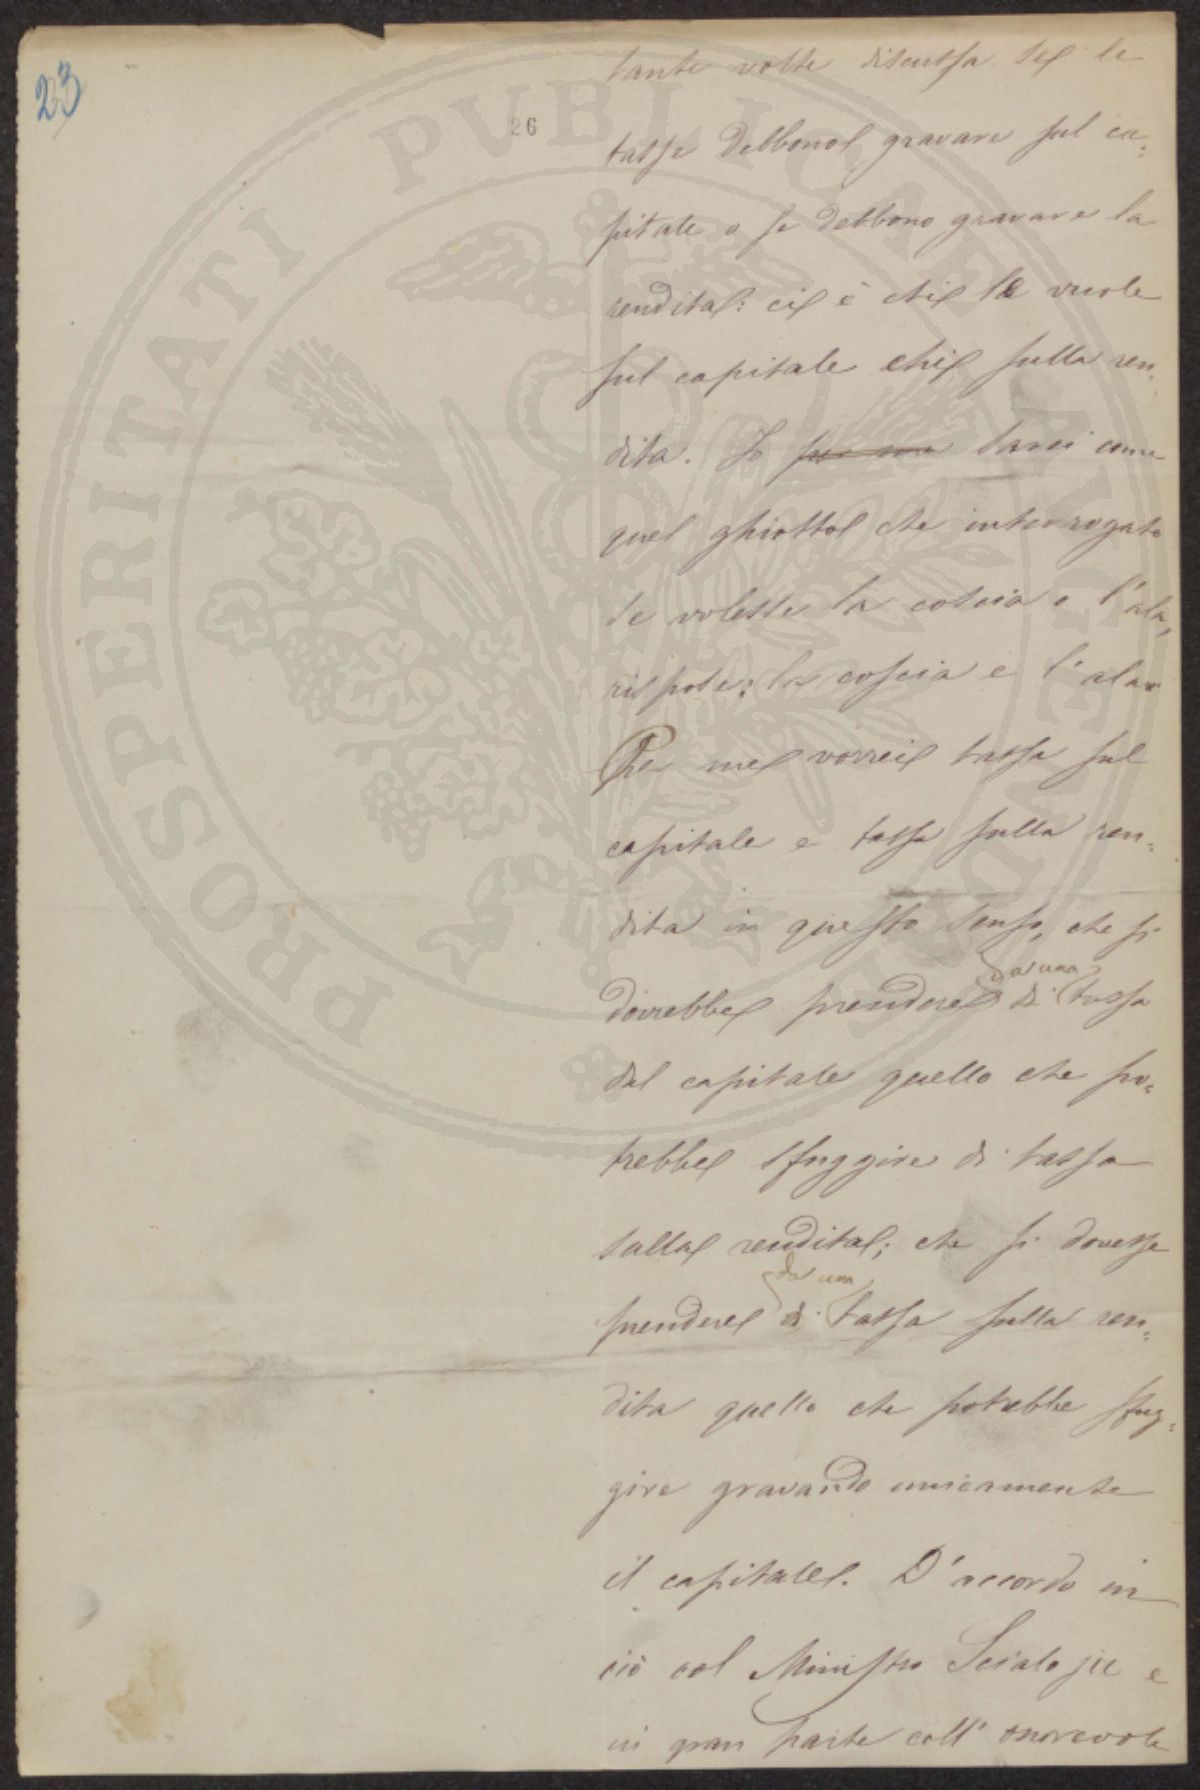 23
26
tante volte discussa se le
tasse debbono gravare sul ca=
pitale o se debbono gravare la
rendita: ci è chi le vuole
sul capitale chi sulla ren=
dita. Io per me sarei come
quel ghiotto che interrogato
se volesse la coscia o l'ala,
rispose: la coscia e l'ala.
Per me vorrei tassa sul
capitale e tassa sulla ren=
dita in questo senso, che si
da una
dovrebbe prendere di tassa
dal capitale quello che po=
trebbe sfuggire di tassa
sulla rendita; che si dovesse
da una
prendere di tassa sulla ren=
dita quello che potrebbe sfug=
gire gravando unicamente
il capitale. D'accordo in
ciò col Ministro Scialoja e
in gran parte coll' onorevole
PROSPERITATI PVBLICAE AVGENDAE